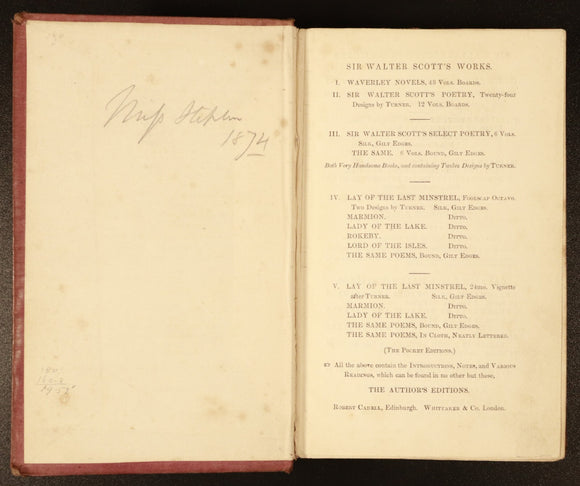 Miss Stephen
1874
SIR WALTER SCOTT'S WORKS.
I. WAVERLEY NOVELS, 48 Vols. Boards.
II. SIR WALTER SCOTT'S POETRY, Twenty-four
Designs by Turner. 12 Vols. Boards.
III. SIR WALTER SCOTT'S SELECT POETRY, 6 Vols.
Silk, Gilt Edges.
THE SAME, 6 Vols. Bound, Gilt Edges.
Both Very Handsome Books, and containing Twelve Designs by Turner.
IV. LAY OF THE LAST MINSTREL, Foolscap Octavo.
Two Designs by Turner. Silk, Gilt Edges.
MARMION. Ditto.
LADY OF THE LAKE. Ditto.
ROKEBY. Ditto.
LORD OF THE ISLES. Ditto.
THE SAME POEMS, Bound, Gilt Edges.
V. LAY OF THE LAST MINSTREL, 24mo. Vignette
after Turner. Silk, Gilt Edges.
MARMION. Ditto.
LADY OF THE LAKE. Ditto.
THE SAME POEMS, Bound, Gilt Edges.
THE SAME POEMS, In Cloth, Neatly Lettered.
(The Pocket Editions.)
☞ All the above contain the Introductions, Notes, and Various
Readings, which can be found in no other but these.
THE AUTHOR'S EDITIONS.
Robert Cadell, Edinburgh. Whittaker & Co. London.